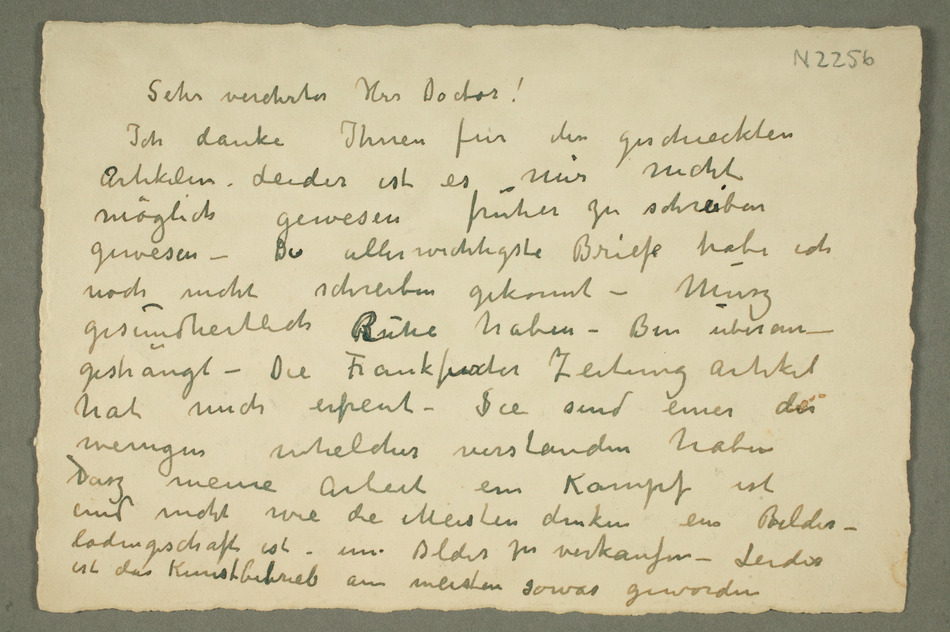 N2256
Sehr verehrter Herr Doctor!
Ich danke Ihnen für den geschickten
Artikeln. Leider ist es mir nicht
möglich gewesen früher zu schreiben
gewesen – Die allerwichtigste Briefe habe ich
noch nicht schreiben gekonnt – Musz
gesundheitlich Ruhe haben – Bin überan–
gesträngt – Die Frankfurter Zeitung artikel
hat mich erfreut – Sie sind einer der
wenigen welcher verstanden haben
Dasz meine Arbeit ein Kampf ist
und nicht wie die Meisten denken ein Bilder–
ladengeschäft ist – um Bilder zu verkaufen – Leider
ist das Kunstbetrieb am meisten sowas geworden